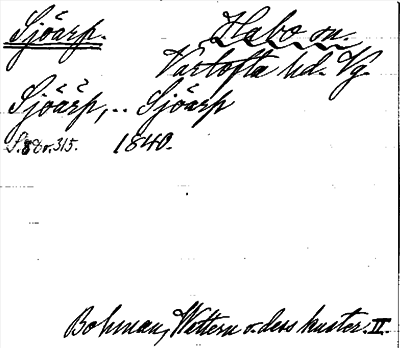 Sjöarp. Habo sn.
Vartofta hd. Vg.
Sjöärp, .. Sjöarp
S. 8 o. 315. 1840.
Bohman, Wettern o. dess kuster. II.